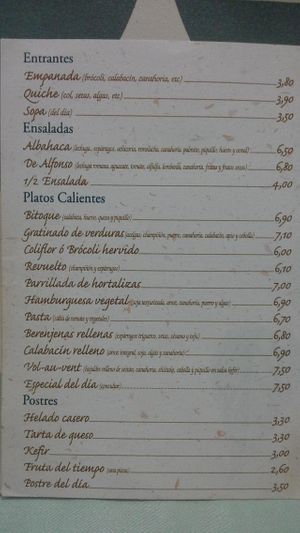 Entrantes
Empanada (brócoli, calabacín, zanahoria, etc) 3,80
Quiche (col, setas, algas, etc) 3,90
Sopa (del día) 3,50
Ensaladas
Albahaca (lechuga, espárragos, remolacha, zanahoria, palmito, piquillo, huevo y cereal) 6,50
De Alfonso (lechuga romana, aguacate, tomate, alfalfa, lombarda, zanahoria, frutas y frutos secos) 6,80
1/2 Ensalada 4,00
Platos Calientes
Bitoque (calabaza, huevo, queso y piquillo) 6,90
Gratinado de verduras (acelgas, champiñón, puerro, zanahoria, calabacín, apio y cebolla) 7,10
Coliflor ó Brócoli hervido 6,00
Revuelto (champiñón y espárragos) 6,10
Parrillada de hortalizas 7,00
Hamburguesa vegetal (soja texturizada, arroz, zanahoria, puerro y algas) 6,90
Pasta (salsa de tomate y vegetales) 6,70
Berenjenas rellenas (espárragos trigueros, sésamo y tofu) 6,80
Calabacín relleno (arroz integral, soja, algas y zanahoria) 6,90
Vol-au-vent (hojaldre relleno de seitán, zanahoria, cebolla y piquillo en salsa kefir) 7,50
Especial del día (consultar) 7,50
Postres
Helado casero 3,30
Tarta de queso 3,30
Kefir 3,00
Fruta del tiempo (una pieza) 2,60
Postre del día 3,50